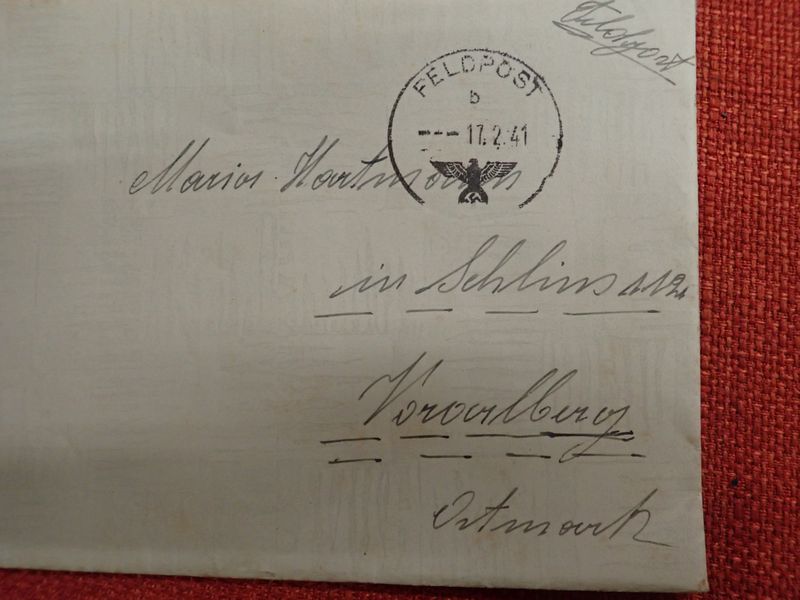 Feldpost
FELDPOST
b
--- 17.2.41
Maria Hartmann
in Schlins 112
Vorarlberg
Ostmark